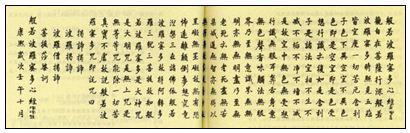 般若波羅蜜多心經
觀自在菩薩行深般若
波羅蜜多時照見五蘊
皆空度一切苦厄舍利
子色不異空空不異色
色即是空空即是色受
想行識亦復如是舍利
子是諸法空相不生不
滅不垢不淨不增不減
是故空中無色無受想
行識無眼耳鼻舌身意
無色聲香味觸法無眼
界乃至無意識界無無
明亦無無明盡乃至無
老死亦無老死盡無苦
集滅道無智亦無得以
無所得故菩提薩埵依
般若波羅蜜多故心無
罣礙無罣礙故無有恐
怖遠離顛倒夢想究竟
涅槃三世諸佛依般若
波羅蜜多故得阿耨多
羅三藐三菩提故知般
若波羅蜜多是大神咒
是大明咒是無上咒是
無等等咒能除一切苦
真實不虛故說般若波
羅蜜多咒即說咒曰
揭諦揭諦
波羅揭諦
波羅僧揭諦
菩提薩婆訶
般若波羅蜜多心經
康熙歲次壬午十月